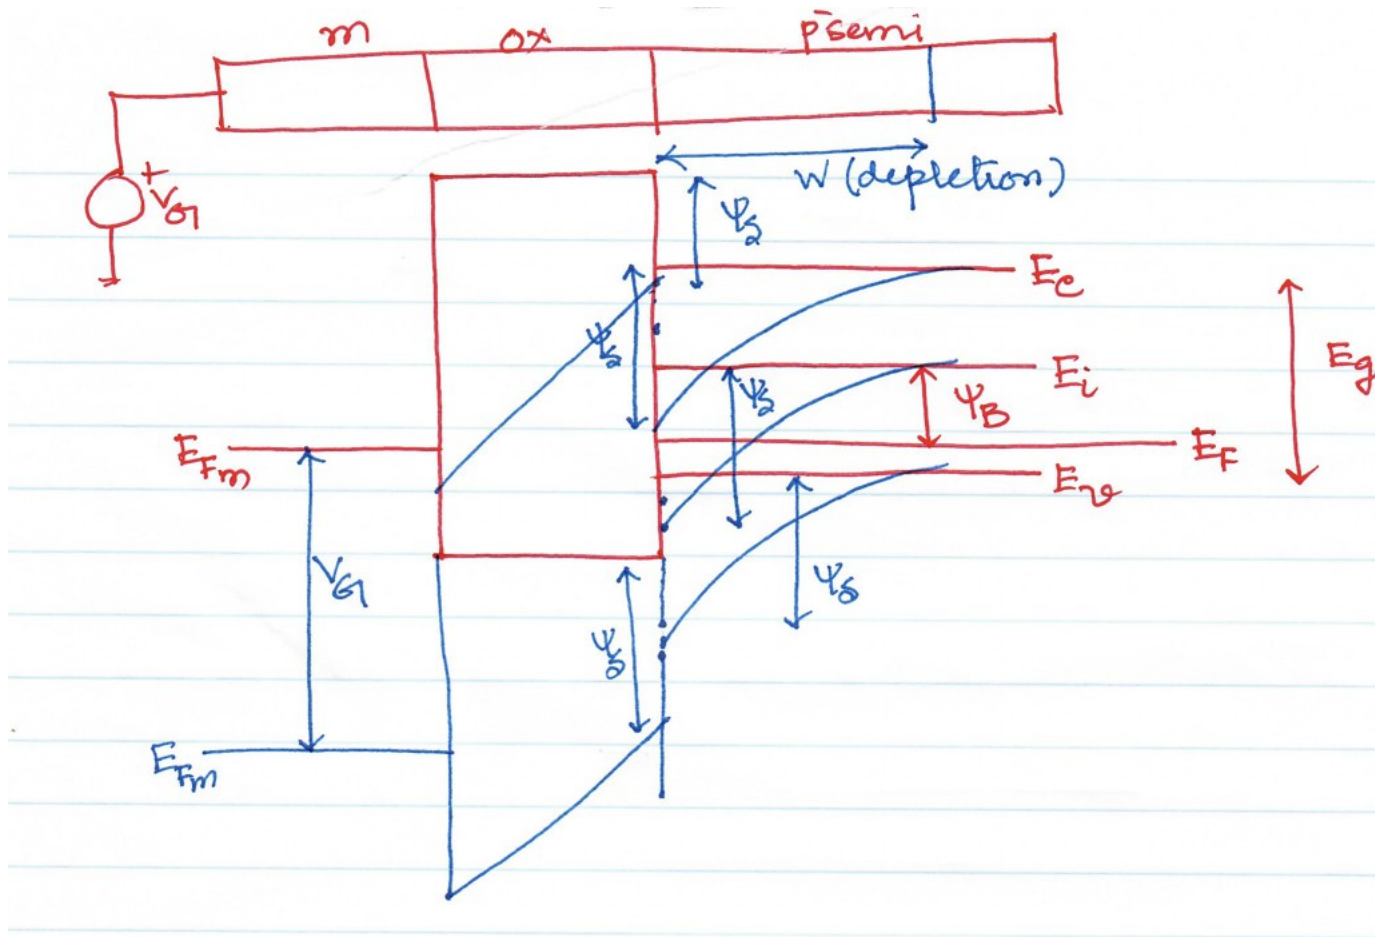 m ox p-semi
+
V_G
W (depletion)
ψ_s
E_c
ψ_s
E_i
E_g
ψ_s
ψ_B
E_Fm
E_F
E_v
V_G
ψ_s
ψ_s
E_Fm